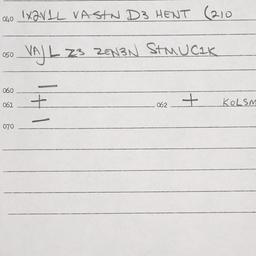 040 1X2V1L VAStN D3 HENT (210
050 VAJL Z3 ZEN3N StMUC1K
060 —
061 + 062 + KOLSM
070 —